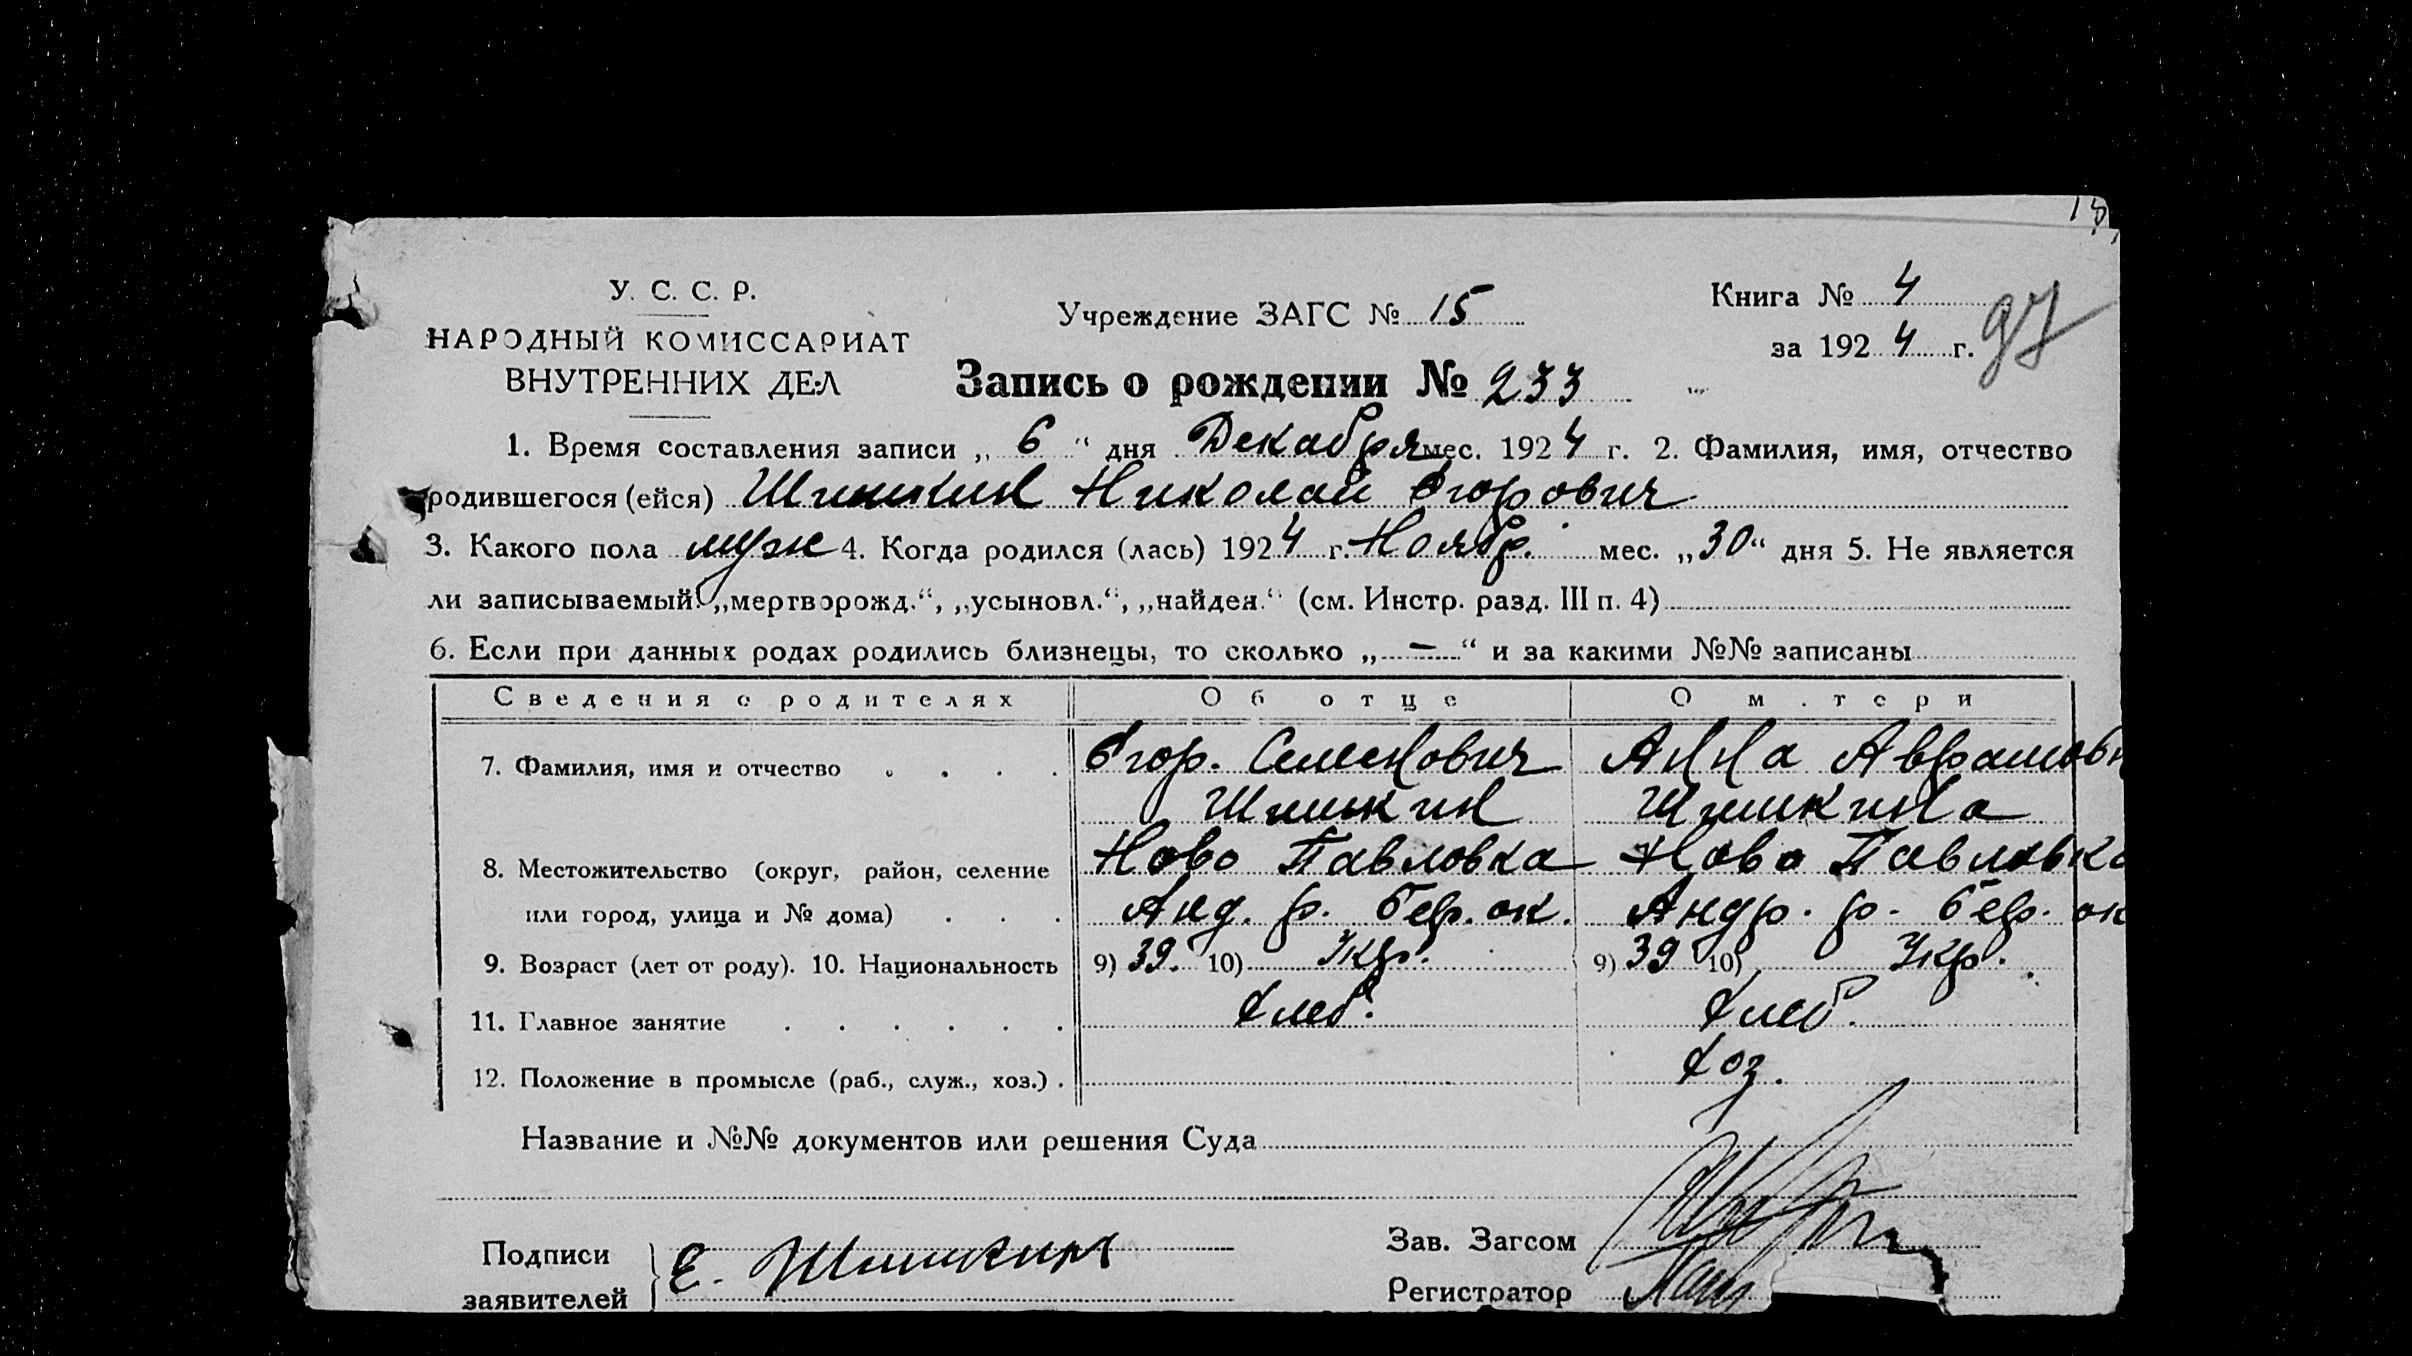 18
У. С. С. Р.
НАРОДНЫЙ КОМИССАРИАТ
ВНУТРЕННИХ ДЕЛ
Учреждение ЗАГС № 15
Книга № 4
за 1924 г.
97
Запись о рождении № 233
1. Время составления записи „ 6 “ дня Декабря мес. 1924 г. 2. Фамилия, имя, отчество
родившегося (ейся) Шишкин Николай Егорович
3. Какого пола муж 4. Когда родился (лась) 1924 г. Ноябр. мес. „30“ дня 5. Не является
ли записываемый: „мертворожд.“, „усыновл.“, „найден.“ (см. Инстр. разд. III п. 4)
6. Если при данных родах родились близнецы, то сколько „ — “ и за какими №№ записаны
Сведения о родителях Об отце О м.тери
7. Фамилия, имя и отчество Егор. Семенович Анна Аврамовн
Шишкин Шишкина
8. Местожительство (округ, район, селение Ново Павловка Ново Павловка
или город, улица и № дома) Анд. р. Бер. ок. Андр. р. Бер. ок
9. Возраст (лет от роду). 10. Национальность 9) 39. 10) Укр. 9) 39 10) Укр.
11. Главное занятие Хлеб. Хлеб.
12. Положение в промысле (раб., служ., хоз.) Хоз.
Название и №№ документов или решения Суда
Подписи
заявителей
Е. Шишкин
Зав. Загсом
Регистратор